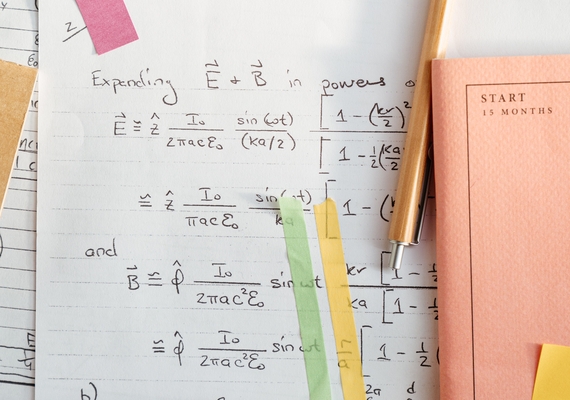 2
Expending E⃗ & B⃗ in powers o
E⃗ ≅ ẑ I₀/(2πacε₀) sin(ωt)/(ka/2) [1 - (kr/2)² / [1 - ½(ka
≅ ẑ I₀/(πacε₀) sin(ωt)/ka [1 - (
and
B⃗ ≅ φ̂ I₀/(2πac²ε₀) sin ωt kr/ka [1 - ½ / [1 - ½
≅ φ̂ I₀/(2πac²ε₀) sin ωt [1 - ½(
b)
START
15 MONTHS